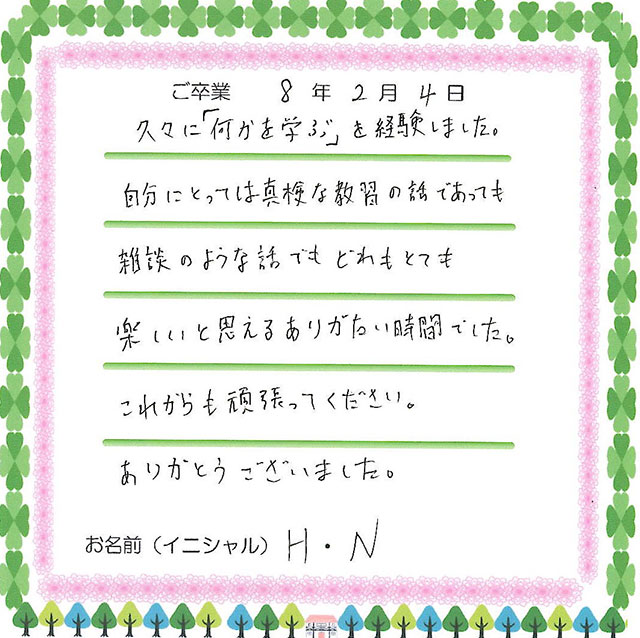 ご卒業 8年2月4日
久々に「何かを学ぶ」を経験しました。
自分にとっては真検な教習の話であっても
雑談のような話でもどれもとても
楽しいと思えるありがたい時間でした。
これからも頑張ってください。
ありがとうございました。
お名前(イニシャル) H・N